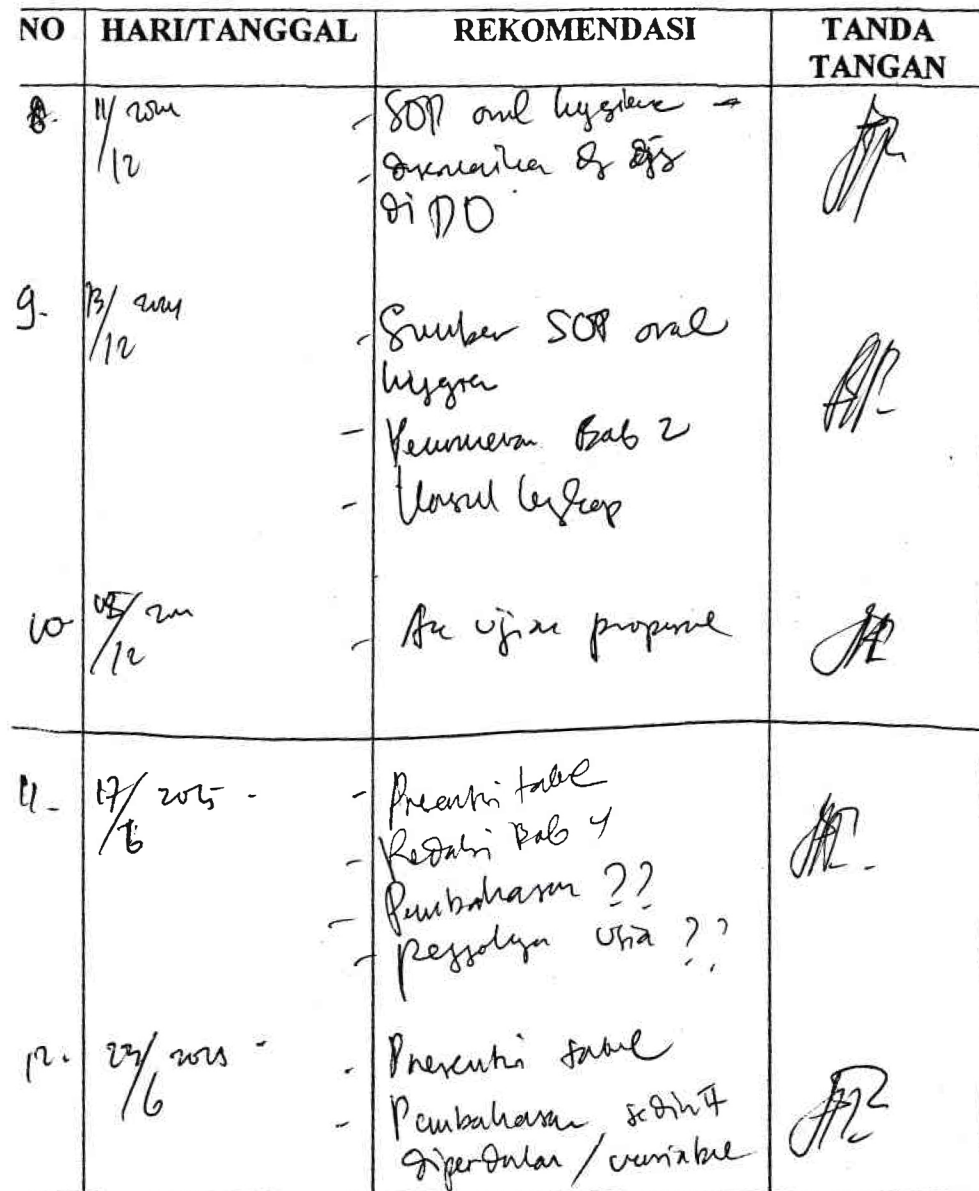 NO HARI/TANGGAL REKOMENDASI TANDA TANGAN
8. 11/12 2024 - SOP oral hygiene -
- disesuaikan dg
di DO
9. 13/12 2024 - Sumber SOP oral
hygiene
- Penomeran Bab 2
- Konsul lengkap
10 /12 - Acc ujian proposal
11- 17/6 2025 - - Presentasi tabel
- Redaksi Bab 4
- Pembahasan ??
- usia ??
12. 23/6 2025 - - Presentasi tabel
- Pembahasan sedikit
diperdalam / variabel